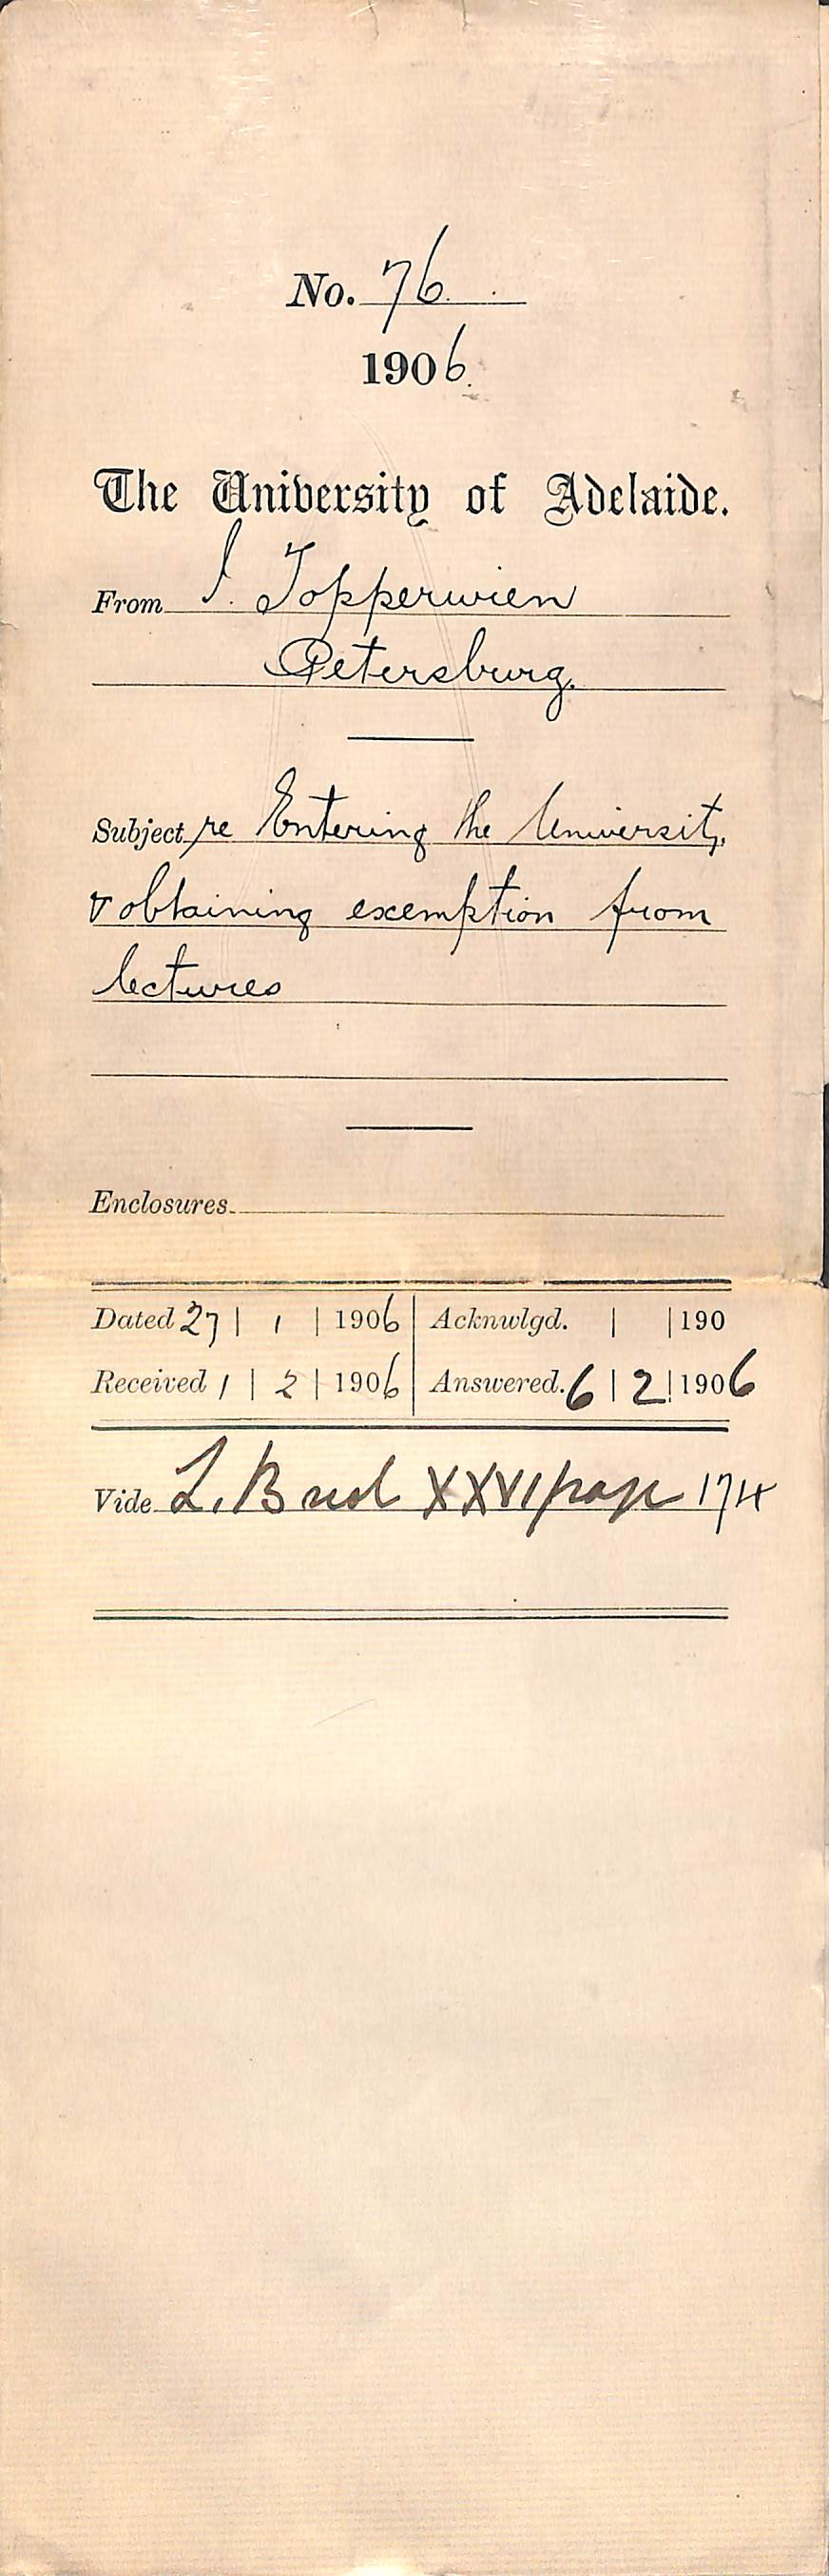 No. 76
1906
The University of Adelaide.
From I. Topperwien
Petersburg.
Subject re Entering the University
& obtaining exemption from
lectures
Enclosures
Dated 27 | 1 | 1906 Acknwlgd. | | 190
Received 1 | 2 | 1906 Answered. 6 | 2 | 1906
Vide L. B XXVI page 174